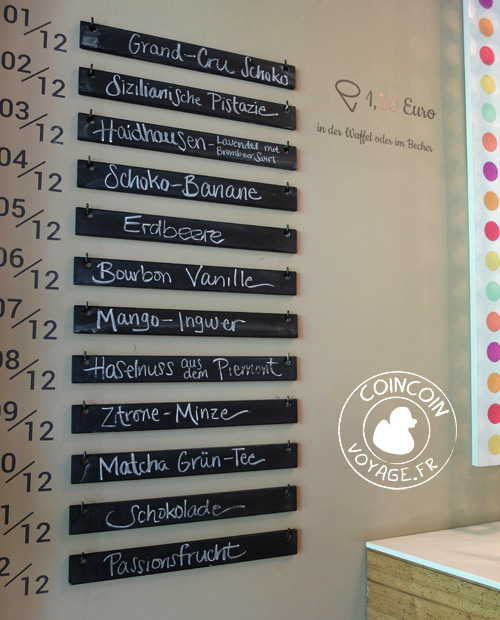 01/12
Grand-Cru Schoko
02/12
Sizilianische Pistazie
03/12
Haidhausen - Lavendel mit
Brombeer Swirl
04/12
Schoko-Banane
05/12
Erdbeere
06/12
Bourbon Vanille
07/12
Mango-Ingwer
08/12
Haselnuss aus dem Piemont
09/12
Zitrone-Minze
0/12
Matcha Grün-Tee
1/12
Schokolade
2/12
Passionsfrucht
1,50 Euro
in der Waffel oder im Becher
COINCOIN
VOYAGE.FR